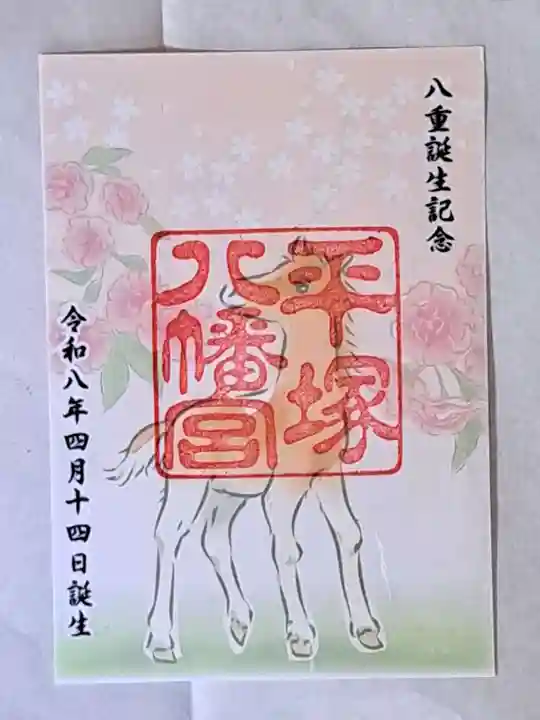 八重誕生記念
平塚
八幡宮
令和八年四月十四日誕生